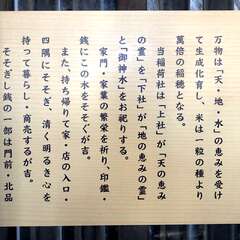 万物は「天・地・水」の恵みを受け
て生成化育し、米は一粒の種より
萬倍の稲穂となる。
当稲荷社は「上社」が「天の恵み
の霊」を「下社」が「地の恵みの霊」
と「御神水」をお祀りする。
家門・家業の繁栄を祈り、印鑑・
銭にこの水をそそぐが吉。
また、持ち帰りて家・店の入口・
四隅にそそぎ、清く明るき心を
持って暮らし・商売するが吉。
そそぎし銭の一部は門前・北品